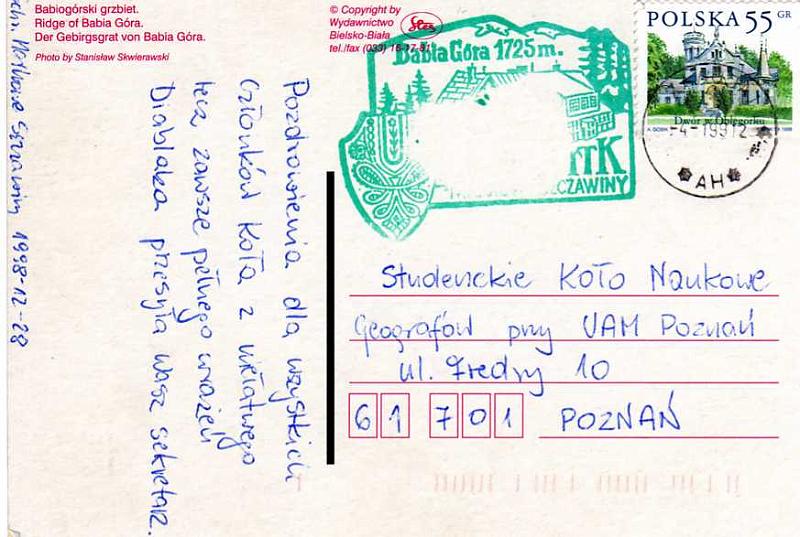 Babiogórski grzbiet.
Ridge of Babia Góra.
Der Gebirgsgrat von Babia Góra.
Photo by Stanisław Skwierawski
© Copyright by
Wydawnictwo
Bielsko-Biała
tel./fax (033) 16-17-81
Babia Góra 1725 m.
POLSKA 55 GR
Dwór w Opinogórze
-4-1991 2
AH
Szczawiny 1998-12-28
Pozdrowienia dla wszystkich
członków Koła z niełatwego
lecz zawsze pełnego wrażeń
Diablaka przesyła Wasz sekretarz.
Studenckie Koło Naukowe
Geografów przy UAM Poznań
ul. Fredry 10
61 701 POZNAŃ